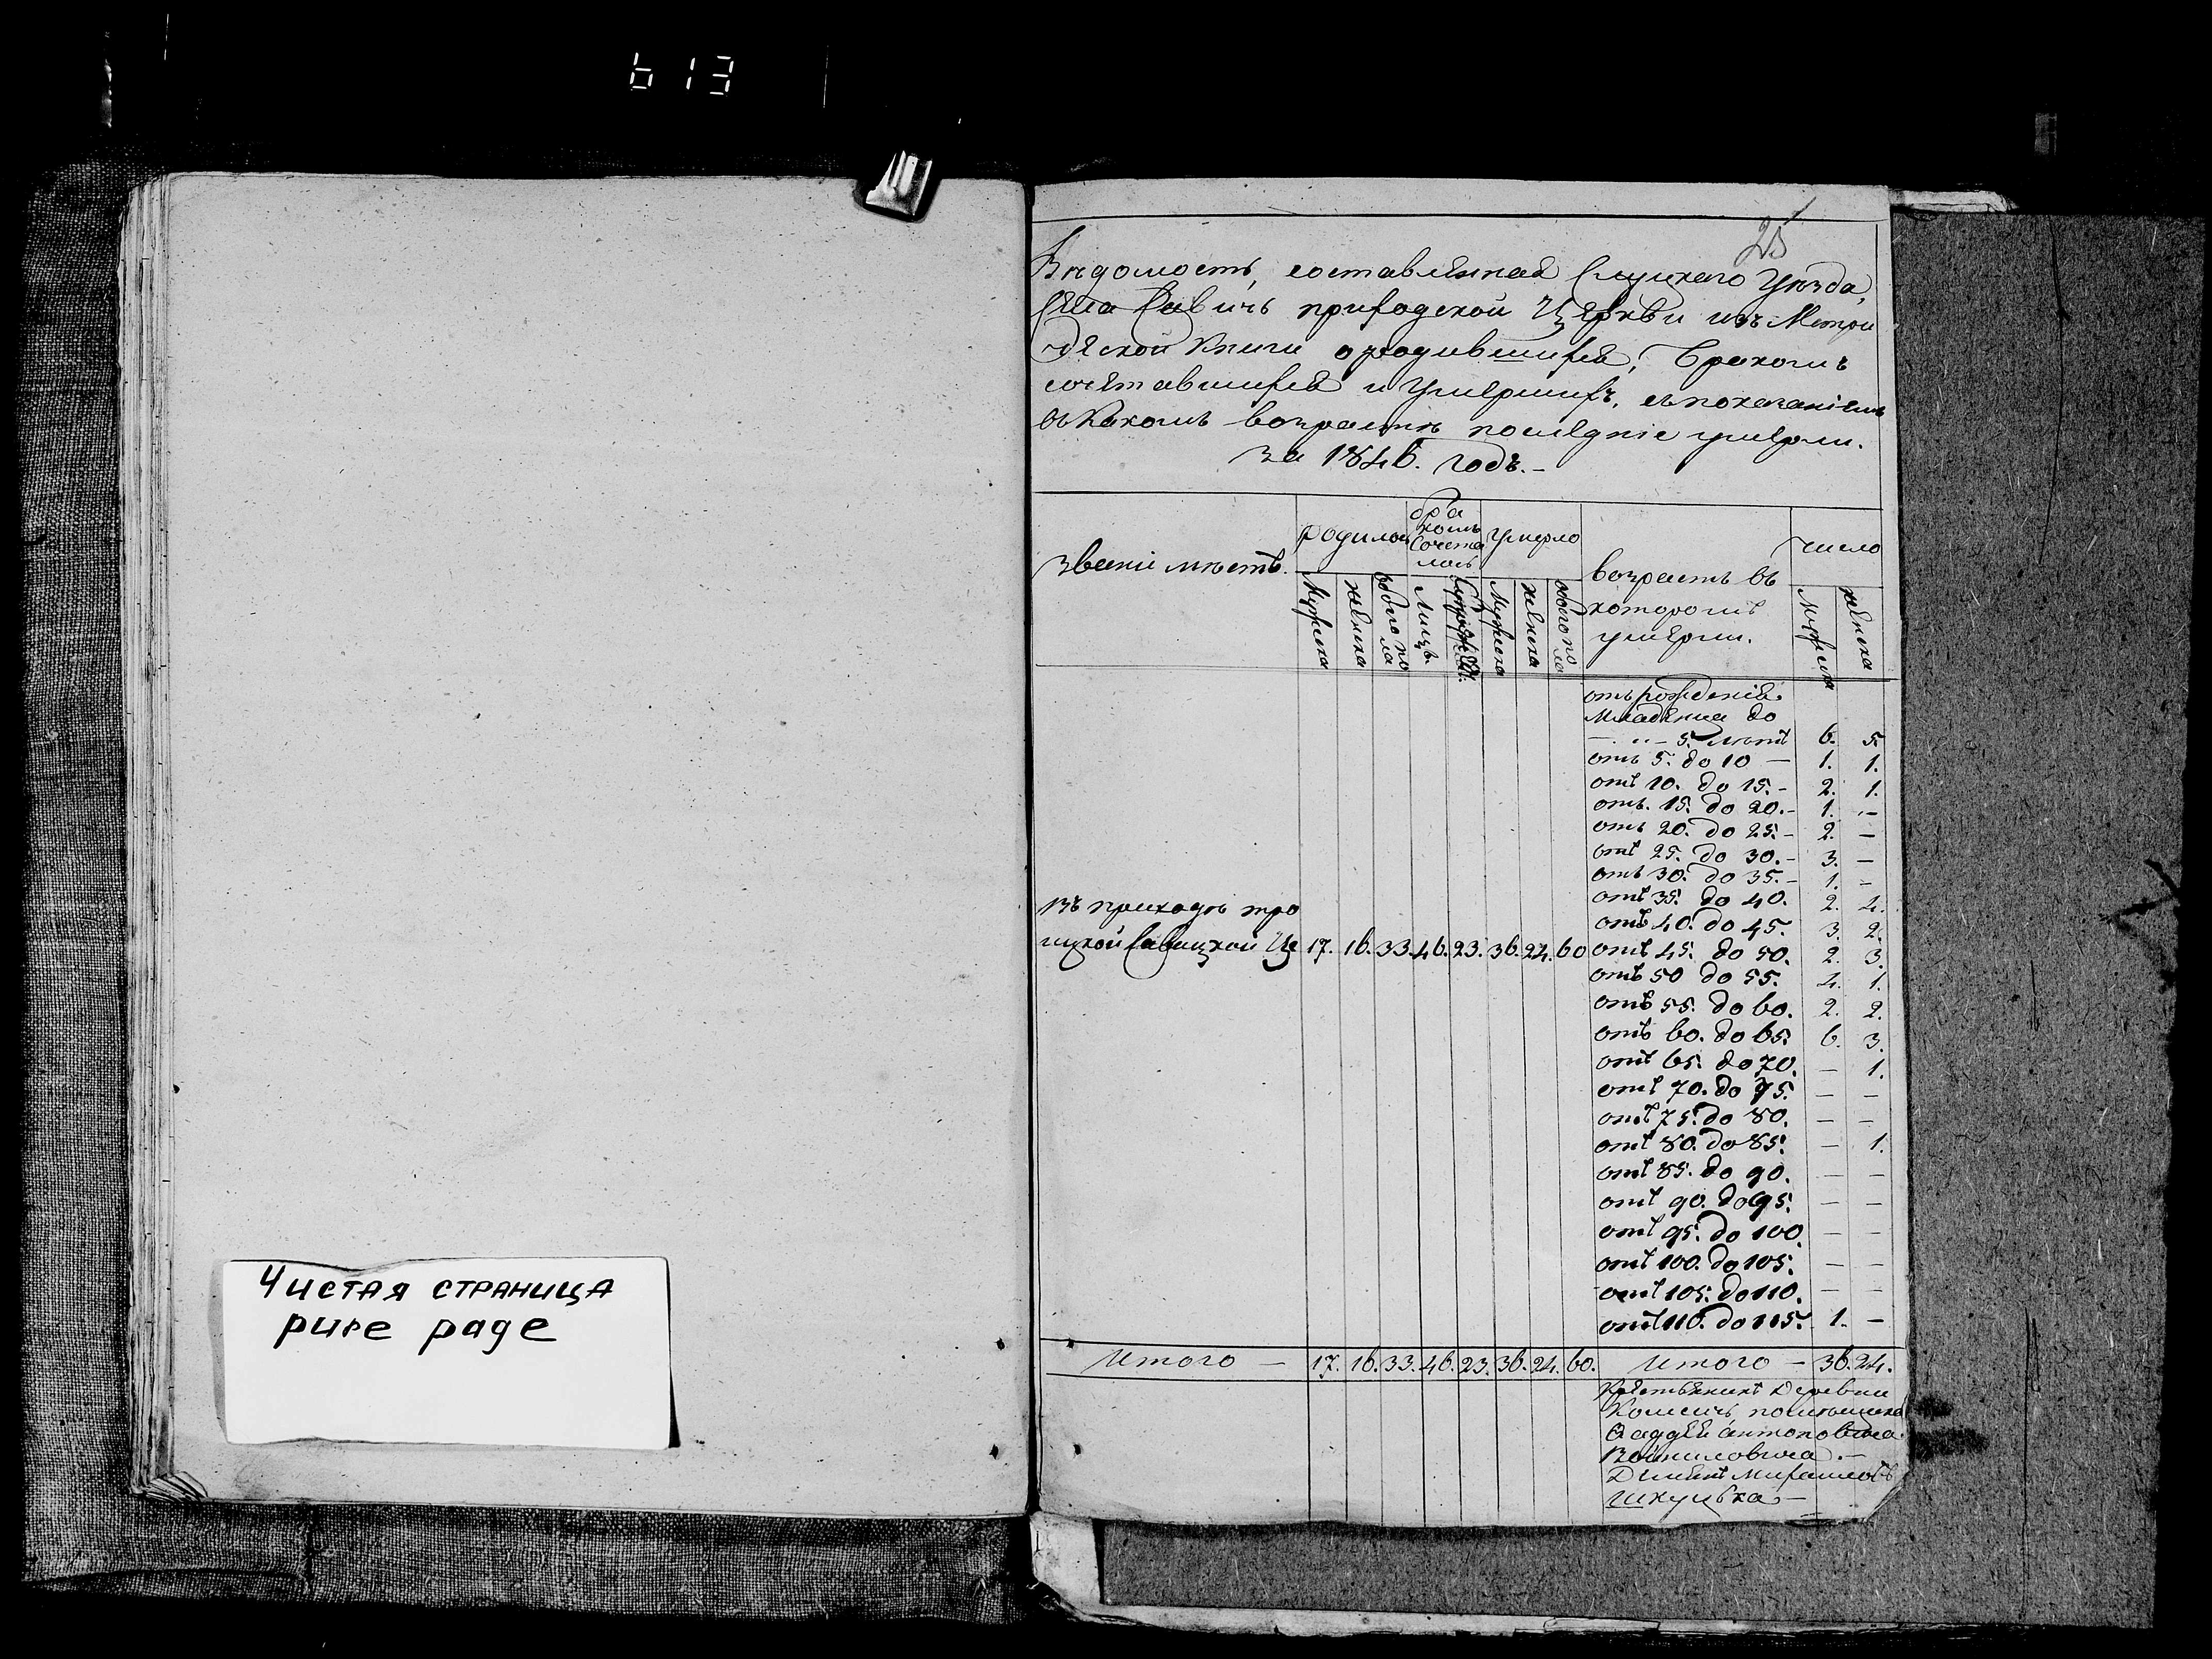 613
25
Вѣдомость, составленная Слуцкаго Уѣзда,
Села Савичъ приходской Церкви изъ Метри
ческой книги о родившихся, Бракомъ
сочетавшихся и Умершихъ, съ показаніемъ
въ какомъ возрастѣ послѣдніе умерли.
За 1846. годъ.-
Званіе мѣстъ.
родилось
бра
комъ
Сочета
лось
Умерло
возрастъ въ
которомъ
умерли.
число
Мужеска
женска
обоего по
ла
Лицъ
Мужеска
женска
обоего по
ла
Мужеска
женска
отъ рожденія
Младенца до
— „ — 5. лѣтъ 6. 5.
отъ 5. до 10 — 1. 1.
отъ 10. до 15.- 2. 1.
отъ. 15. до 20.- 1. -
отъ 20. до 25.- 2. -
отъ 25. до 30.- 3. -
отъ 30. до 35.- 1. -
отъ 35. до 40. 2. 4.
отъ 40. до 45. 3. 2.
Въ приходѣ тро
ицкой Савицкой Це 17. 16. 33. 46. 23. 36. 24. 60 отъ 45. до 50. 2. 3.
отъ 50 до 55. 4. 1.
отъ 55. до 60. 2. 2.
отъ 60. до 65. 6. 3.
отъ 65. до 70. — 1.
отъ 70. до 75. — —
отъ 75. до 80. — —
отъ 80. до 85. — 1.
отъ 85. до 90. — —
отъ 90. до 95. — —
отъ 95. до 100. — —
отъ 100. до 105. — —
отъ 105. до 110. — —
отъ 110. до 115. 1. —
Итого — 17. 16. 33. 46. 23. 36. 24. 60. Итого — 36. 24.
Крестьянинъ Деревни
помѣщика
Фаддея Антоновича
Войниловича.—
Михайловъ
Чистая страница
pure page